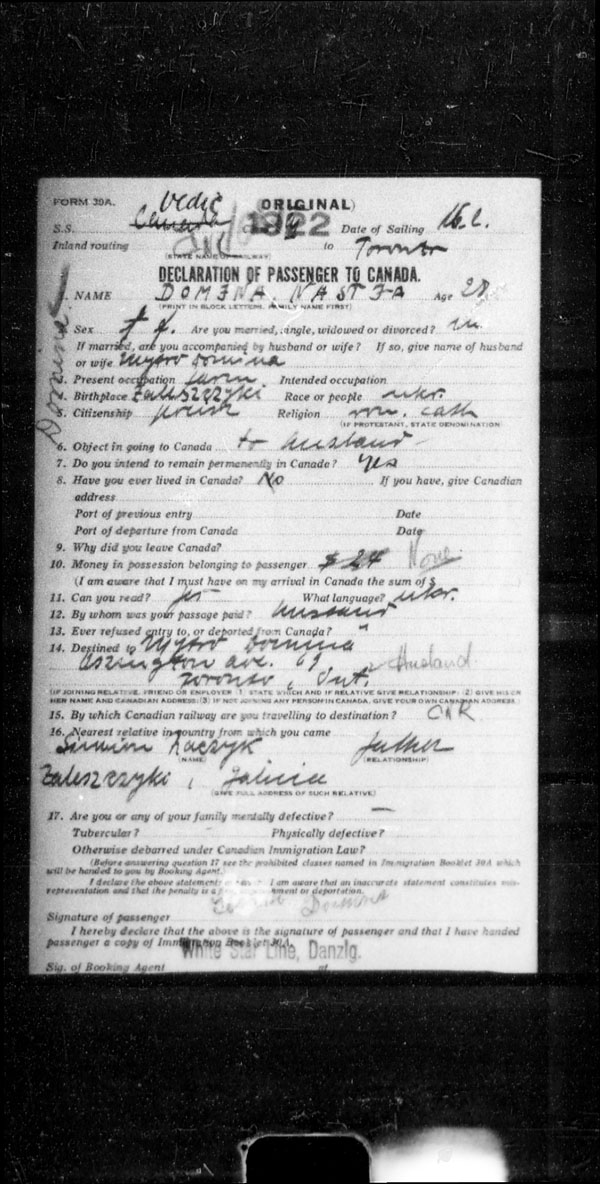 FORM 30A. Vedic (ORIGINAL)
S.S. Canada 1922 Date of Sailing
Inland routing to Toronto
(STATE NAME OF RAILWAY)
DECLARATION OF PASSENGER TO CANADA.
1. NAME DOMENA, NASTJA Age 28
(PRINT IN BLOCK LETTERS, FAMILY NAME FIRST)
Domina
Sex f. Are you married, single, widowed or divorced? m.
If married, are you accompanied by husband or wife? If so, give name of husband
or wife Mytro Domina
3. Present occupation farm. Intended occupation
4. Birthplace Zaleszczyki Race or people ukr.
5. Citizenship polish Religion rom. cath
(IF PROTESTANT, STATE DENOMINATION
6. Object in going to Canada to husband
7. Do you intend to remain permanently in Canada? Yes
8. Have you ever lived in Canada? No If you have, give Canadian
address
Port of previous entry Date
Port of departure from Canada Date
9. Why did you leave Canada?
10. Money in possession belonging to passenger $24 None.
(I am aware that I must have on my arrival in Canada the sum of $
11. Can you read? yes What language? ukr.
12. By whom was your passage paid? husband
13. Ever refused entry to, or deported from Canada? "
14. Destined to Mytro Domina
ave. 69 Husband
Toronto, Ont.
(IF JOINING RELATIVE, FRIEND OR EMPLOYER (1) STATE WHICH AND IF RELATIVE GIVE RELATIONSHIP: (2) GIVE HIS OR
HER NAME AND CANADIAN ADDRESS: (3) IF NOT JOINING ANY PERSON IN CANADA, GIVE YOUR OWN CANADIAN ADDRESS.)
15. By which Canadian railway are you travelling to destination? CNR
16. Nearest relative in country from which you came
Simion Kaczyk father
(NAME) (RELATIONSHIP)
Zaleszczyki, Galicia
(GIVE FULL ADDRESS OF SUCH RELATIVE)
17. Are you or any of your family mentally defective? —
Tubercular? Physically defective?
Otherwise debarred under Canadian Immigration Law?
(Before answering question 17 see the prohibited classes named in Immigration Booklet 30A which
will be handed to you by Booking Agent.)
I declare the above statements I am aware that an inaccurate statement constitutes mis-
representation and that the penalty is a or deportation.
Signature of passenger
I hereby declare that the above is the signature of passenger and that I have handed
passenger a copy of Immigration Booklet 30A.
White Star Line, Danzig.
Sig. of Booking Agent at